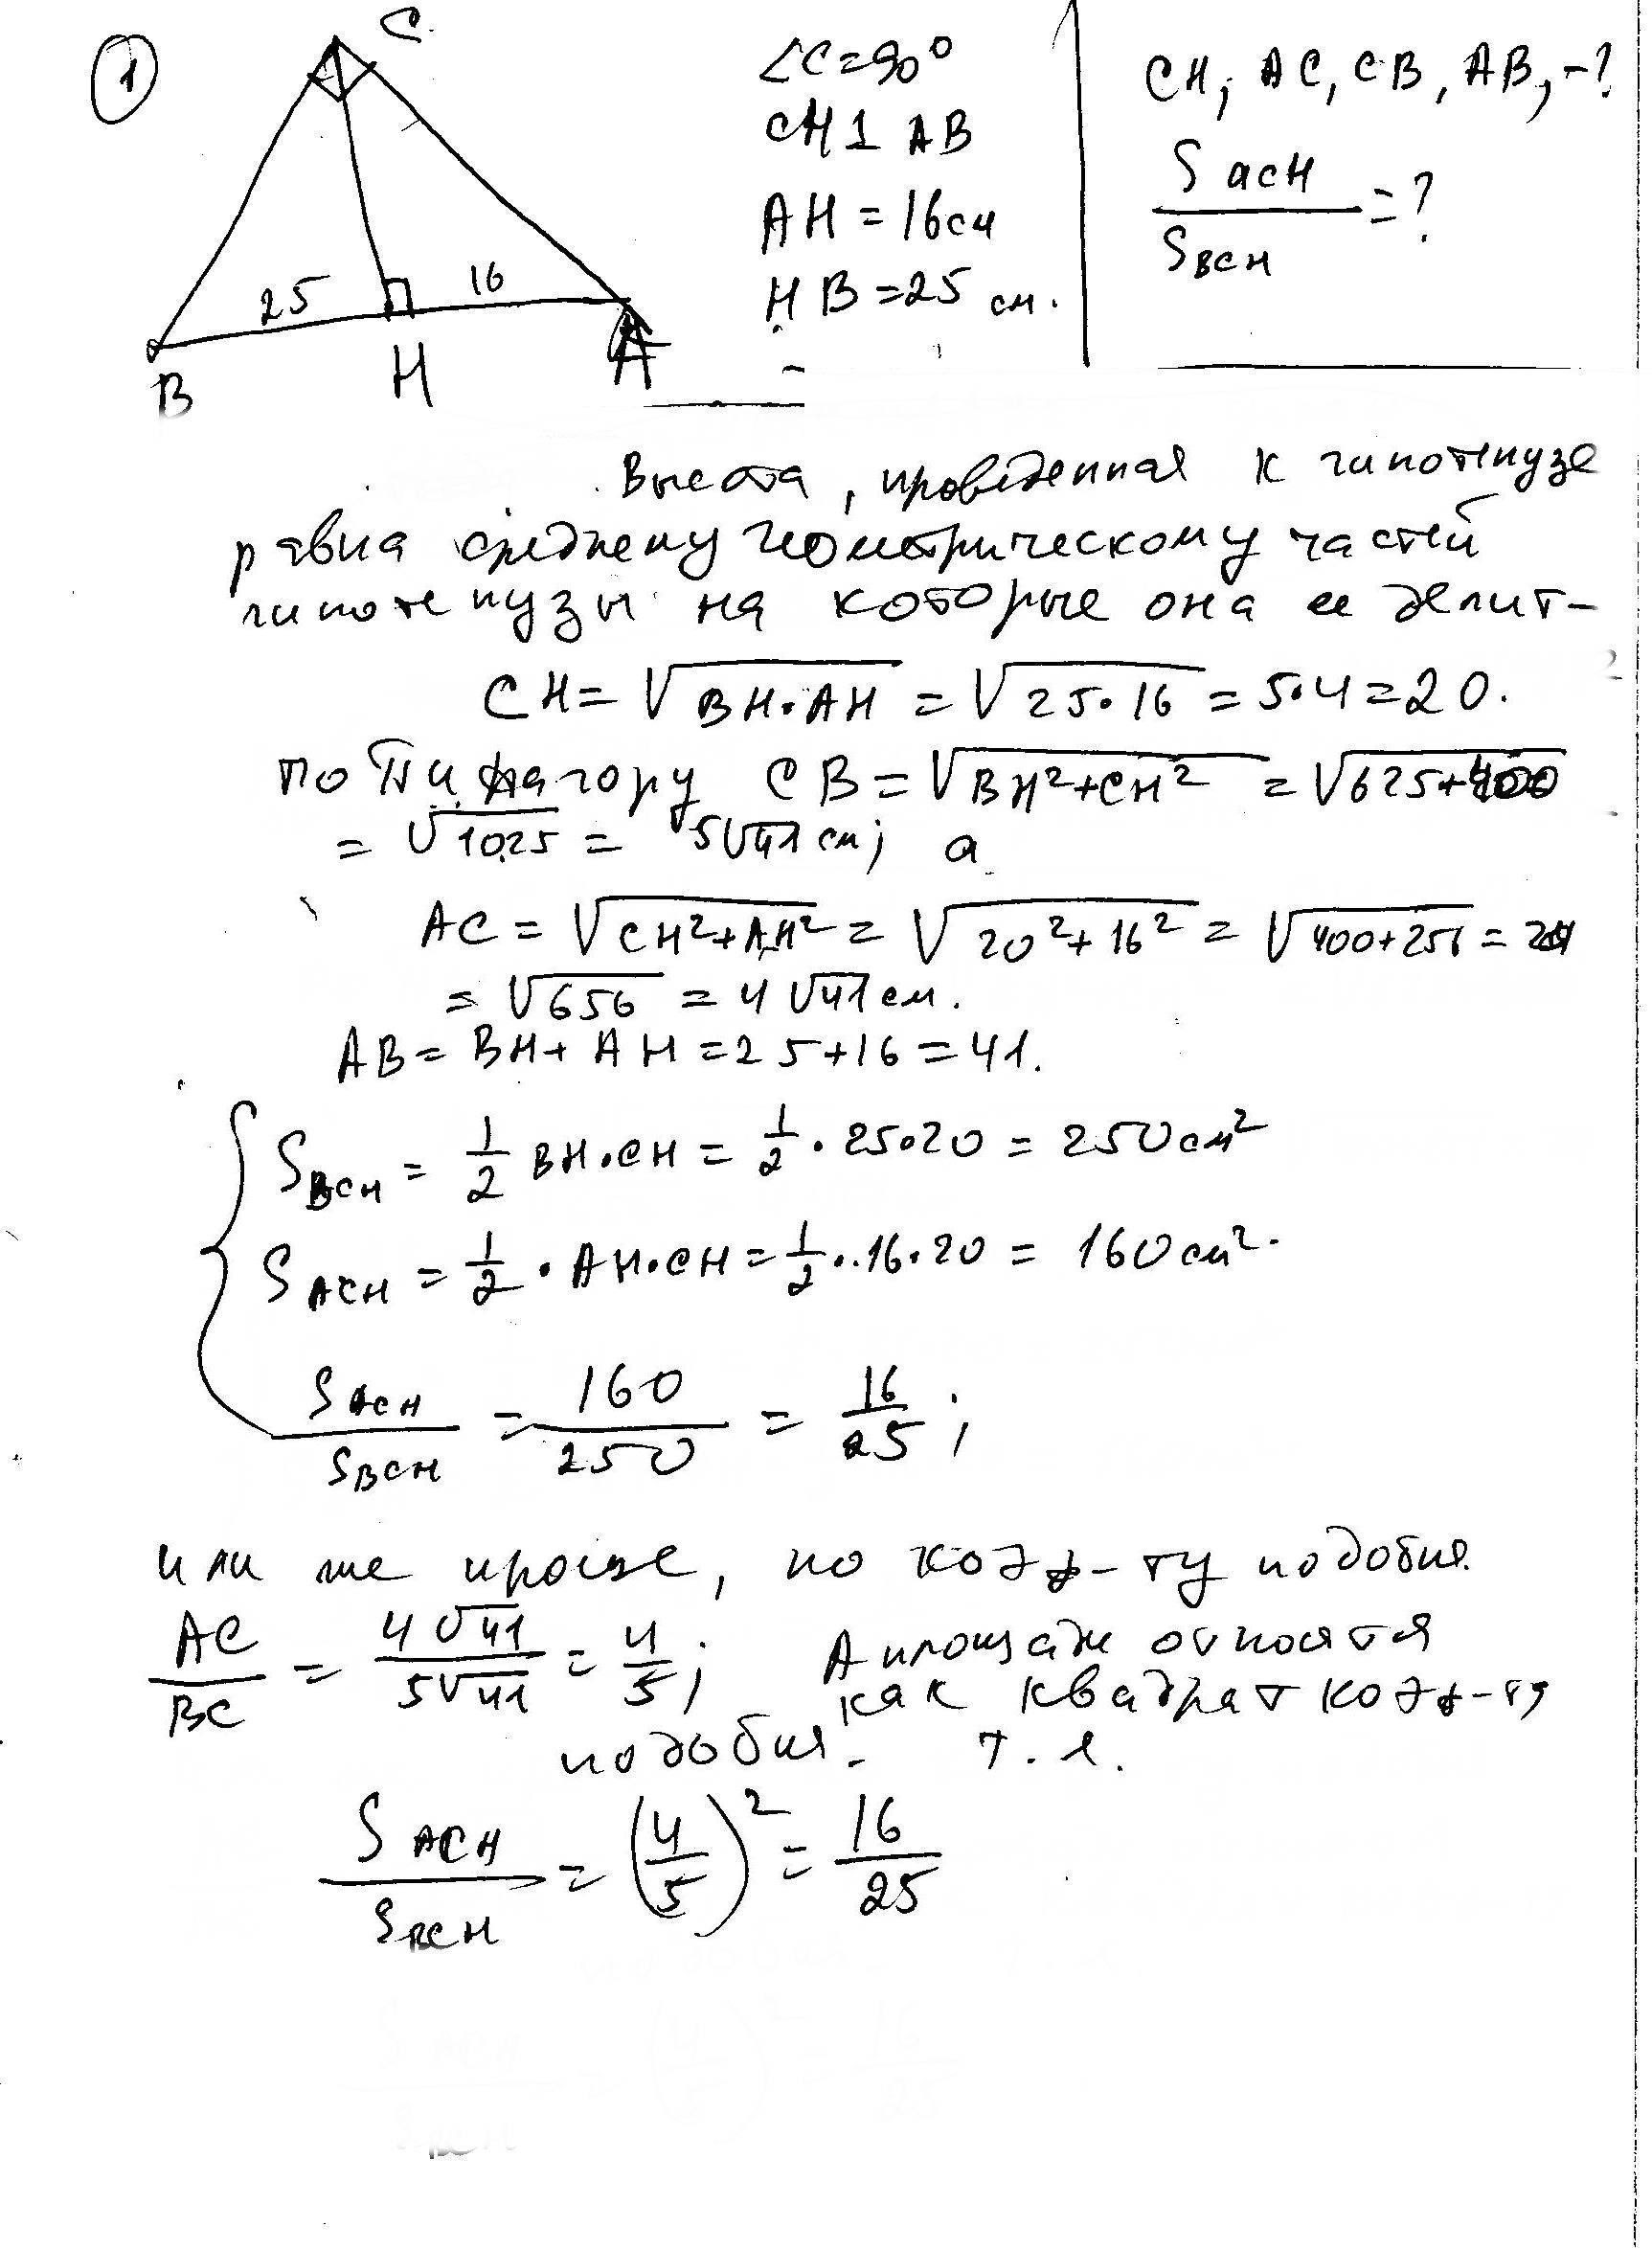 1
C
∠C=90°
CH⊥AB
AH=16см
HB=25 см.
CH; AC, CB, AB, -?
S ACH / S BCH = ?
25 16
B H A
Высота, проведенная к гипотенузе
равна среднему геометрическому частей
гипотенузы на которые она ее делит-
CH=√(BH·AH) = √(25·16) = 5·4=20.
По Пифагору CB=√(BH²+CH²) = √(625+400)
= √1025 = 5√41 см; а
AC = √(CH²+AH²) = √(20²+16²) = √(400+256) =
= √656 = 4√41 см.
AB= BH+AH=25+16=41.
S BCH = 1/2 BH·CH = 1/2·25·20 = 250 см²
S ACH = 1/2·AH·CH = 1/2·16·20 = 160 см².
S ACH / S BCH = 160/250 = 16/25;
или же проще, по коэф-ту подобия.
AC/BC = 4√41 / 5√41 = 4/5; А площади относятся
как квадрат коэф-та
подобия. т.е.
S ACH / S BCH = (4/5)² = 16/25